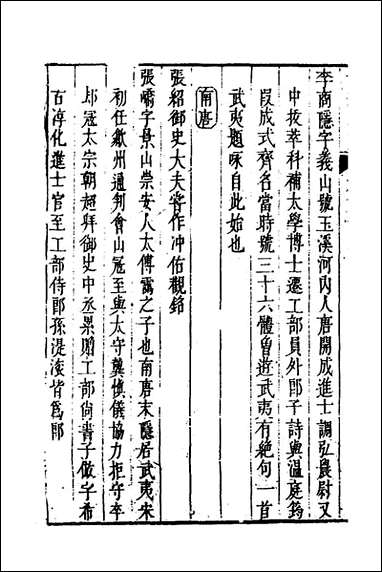 李商隱字義山號玉溪河內人唐開成進士調弘農尉又
中拔萃科補太學博士遷工部員外郎子詩與溫庭筠
段成式齊名當時號三十六體曾遊武夷有絕句一首
武夷題咏自此始也
南唐
張紹御史大夫嘗作冲佑觀銘
張嶠字景山崇安人太傅靄之子也南唐末隱居武夷宋
初任歙州通判會山寇至與太守龔慎儀協力拒守卒
却寇太宗朝超拜御史中丞累贈工部尚書子做字希
古淳化進士官至工部侍郎孫湜浚皆爲郎